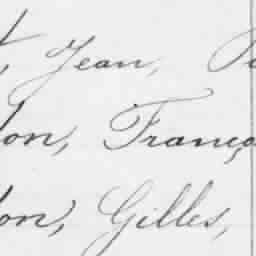 Jean,
don, Franço
don, Gilles,